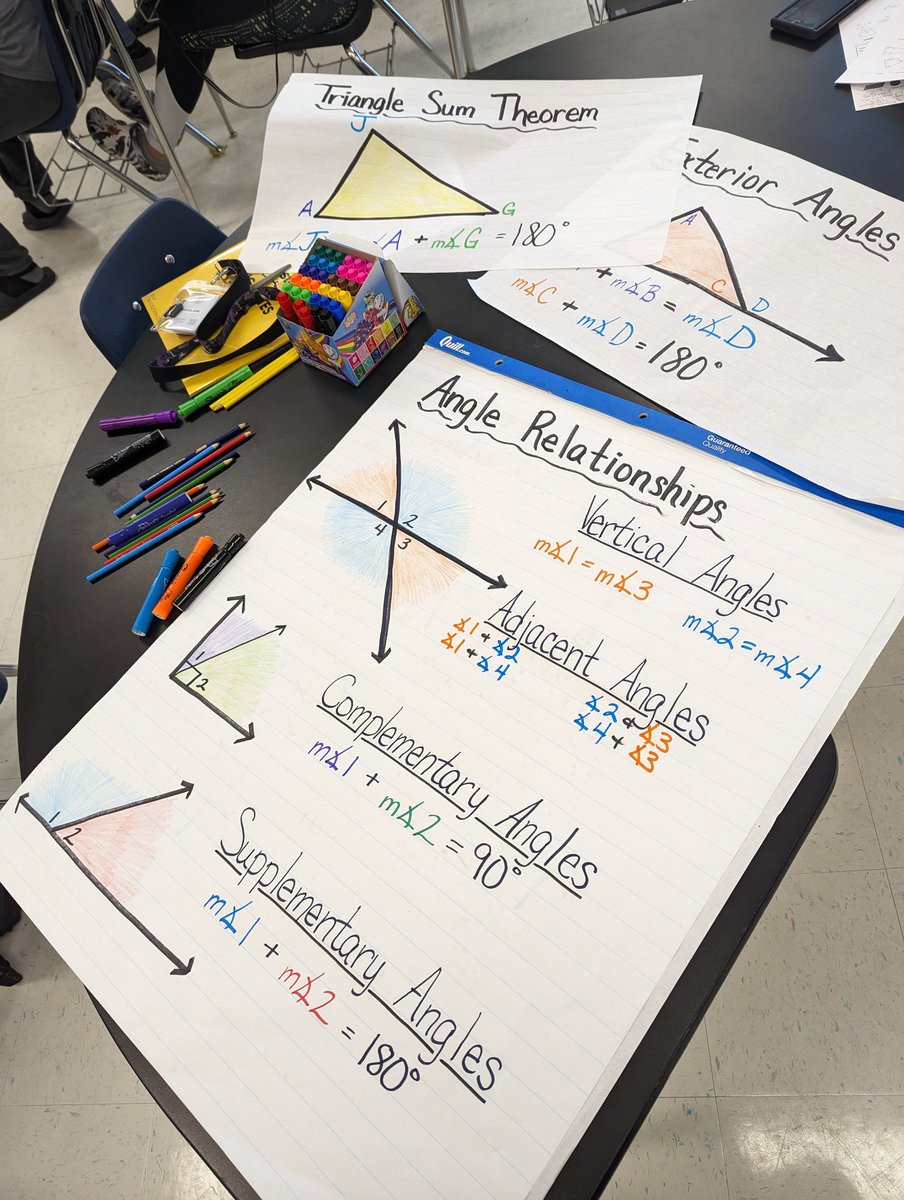 Triangle Sum Theorem
J
A
G
m∡J A + m∡G = 180°
Exterior Angles
A
C
D
+ m∡B = m∡D
m∡C + m∡D = 180°
Quill.com
Guaranteed
Quality
Angle Relationships
1
2
4
3
Vertical Angles
m∡1 = m∡3
m∡2 = m∡4
Adjacent Angles
∡1 + ∡2
∡1 + ∡4
∡2 + ∡3
∡4 + ∡3
1
2
Complementary Angles
m∡1 + m∡2 = 90°
1
2
Supplementary Angles
m∡1 + m∡2 = 180°